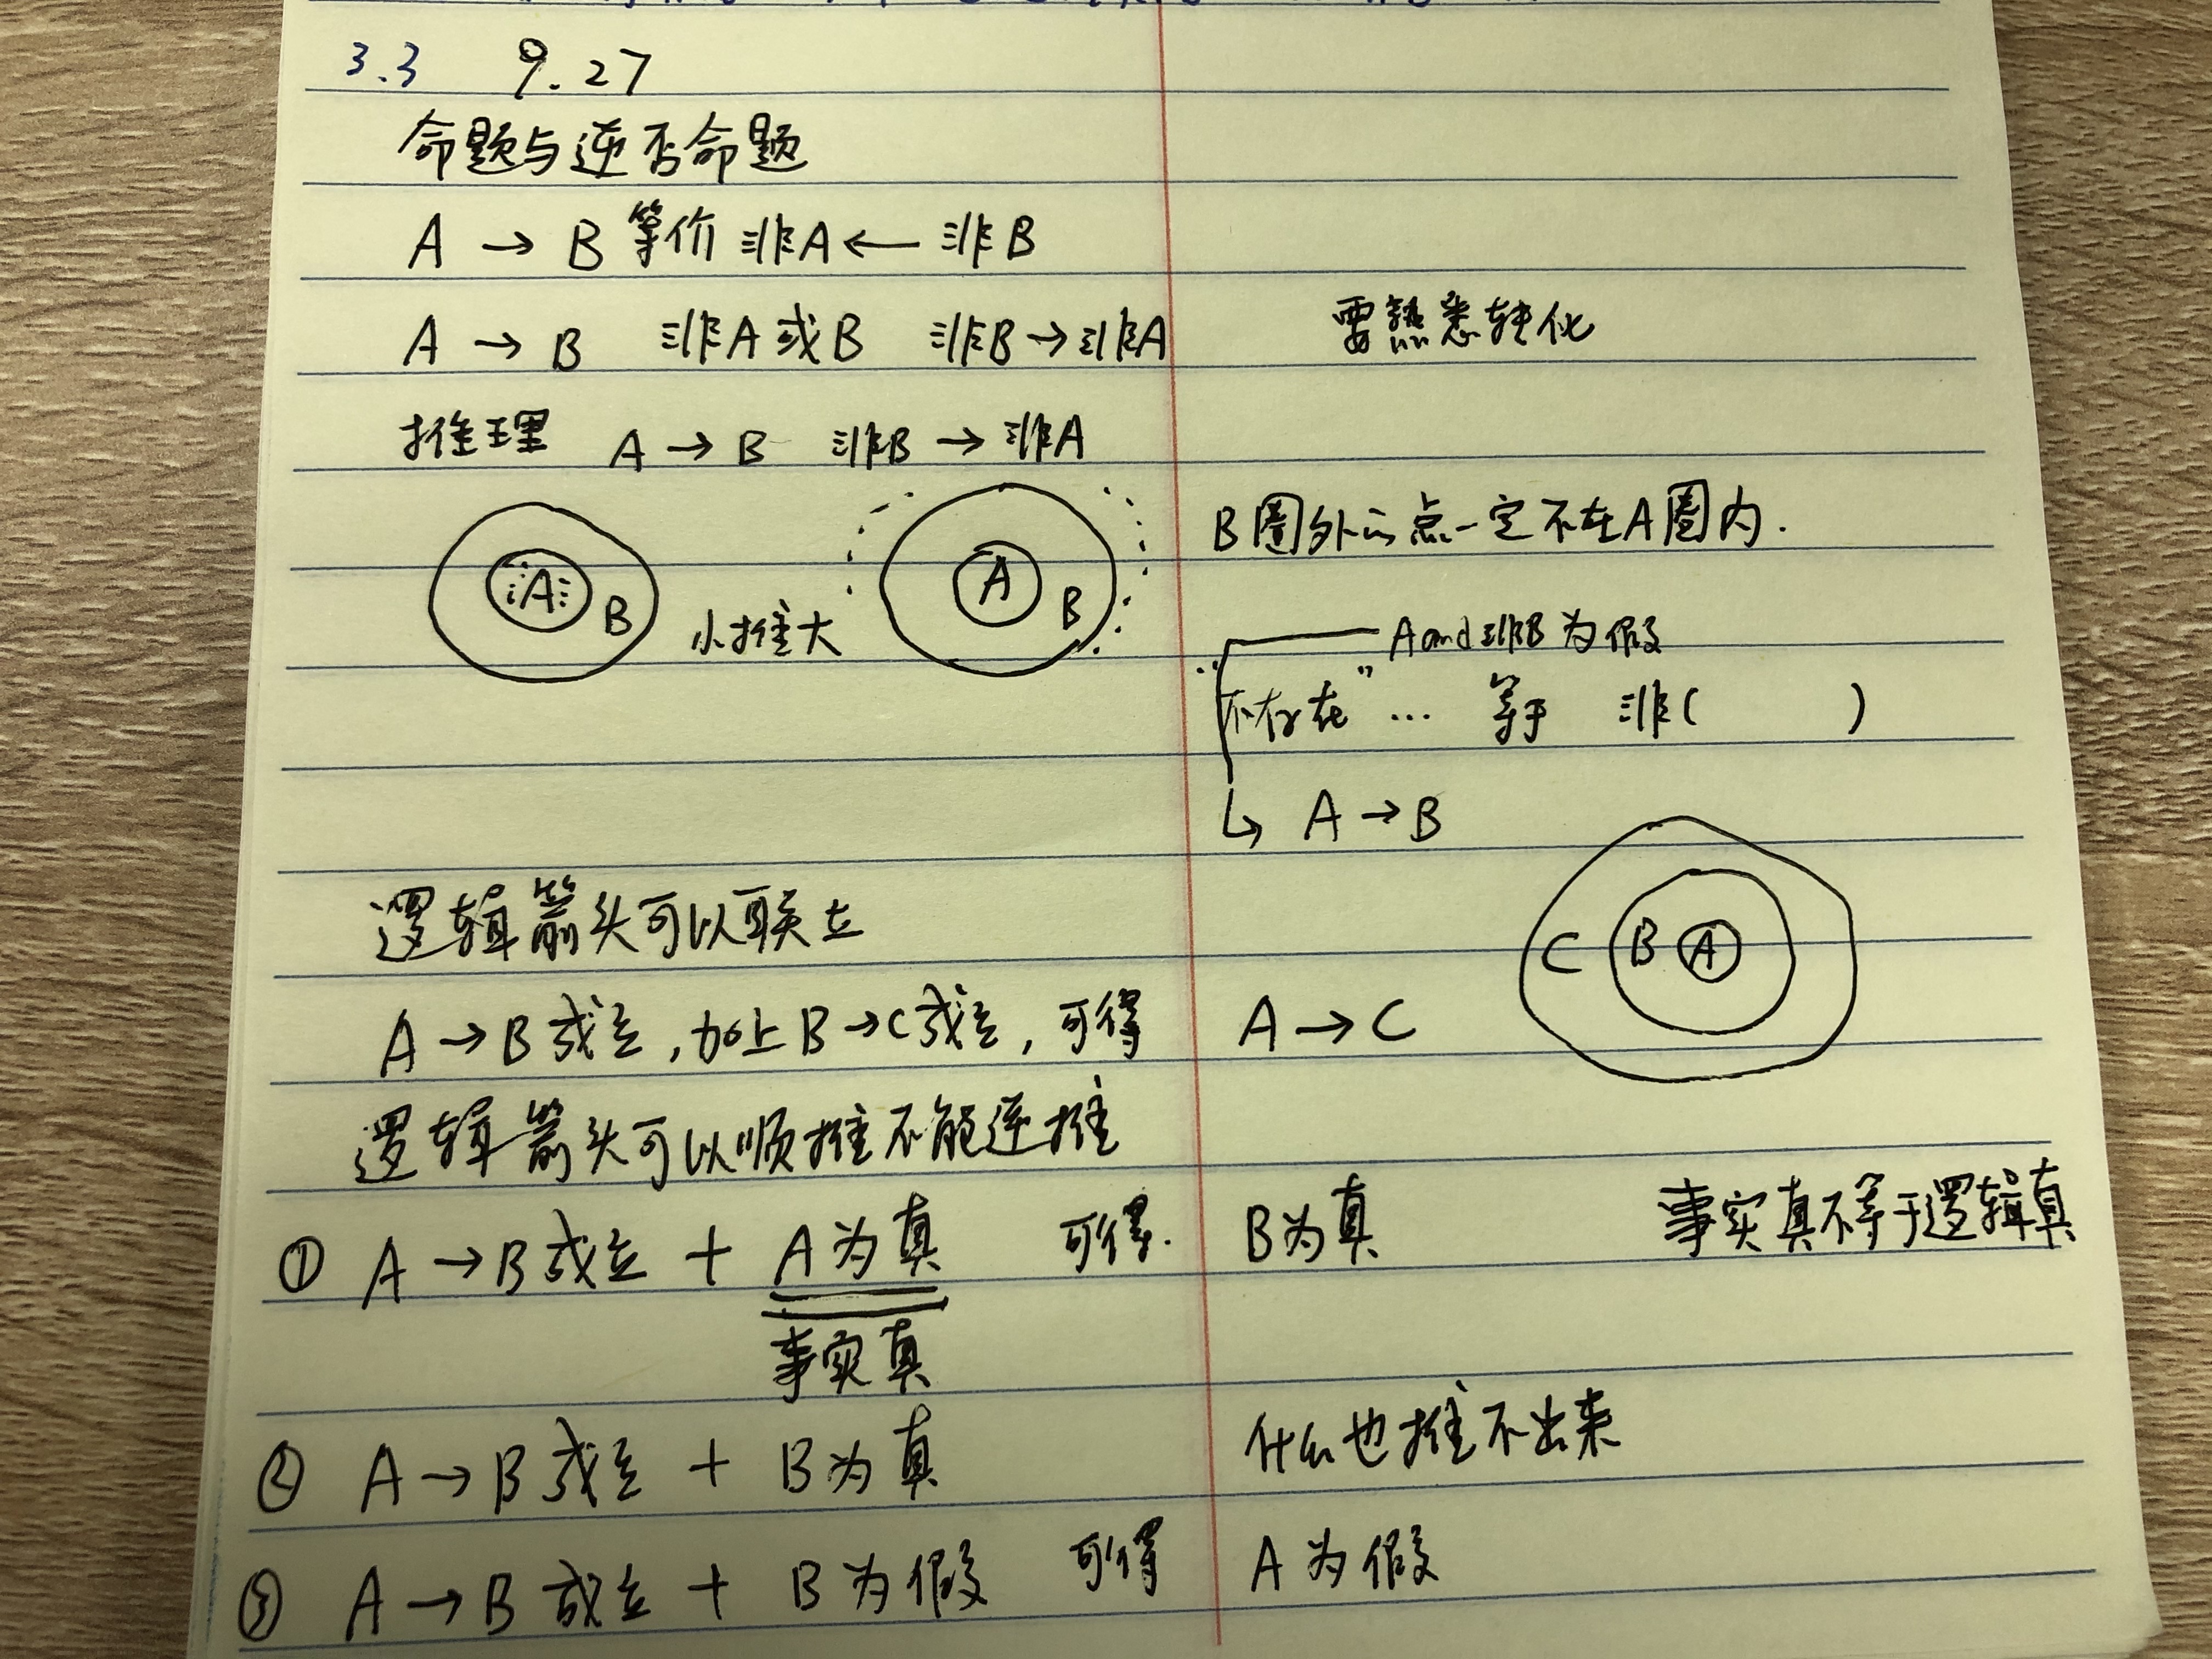 3.3 9.27
命题与逆否命题
A → B 等价 非A ← 非B
A → B 非A或B 非B → 非A 要熟悉转化
推理 A → B 非B → 非A
A B 小推大 A B B圈外的点一定不在A圈内.
A and 非B 为假
"不存在" … 等于 非( )
↳ A → B
逻辑箭头可以联立
C B A
A → B 成立, 加上 B → C 成立, 可得 A → C
逻辑箭头可以顺推不能逆推
① A → B 成立 + A为真 可得. B为真 事实真不等于逻辑真
事实真
② A → B 成立 + B为真 什么也推不出来
③ A → B 成立 + B为假 可得 A为假